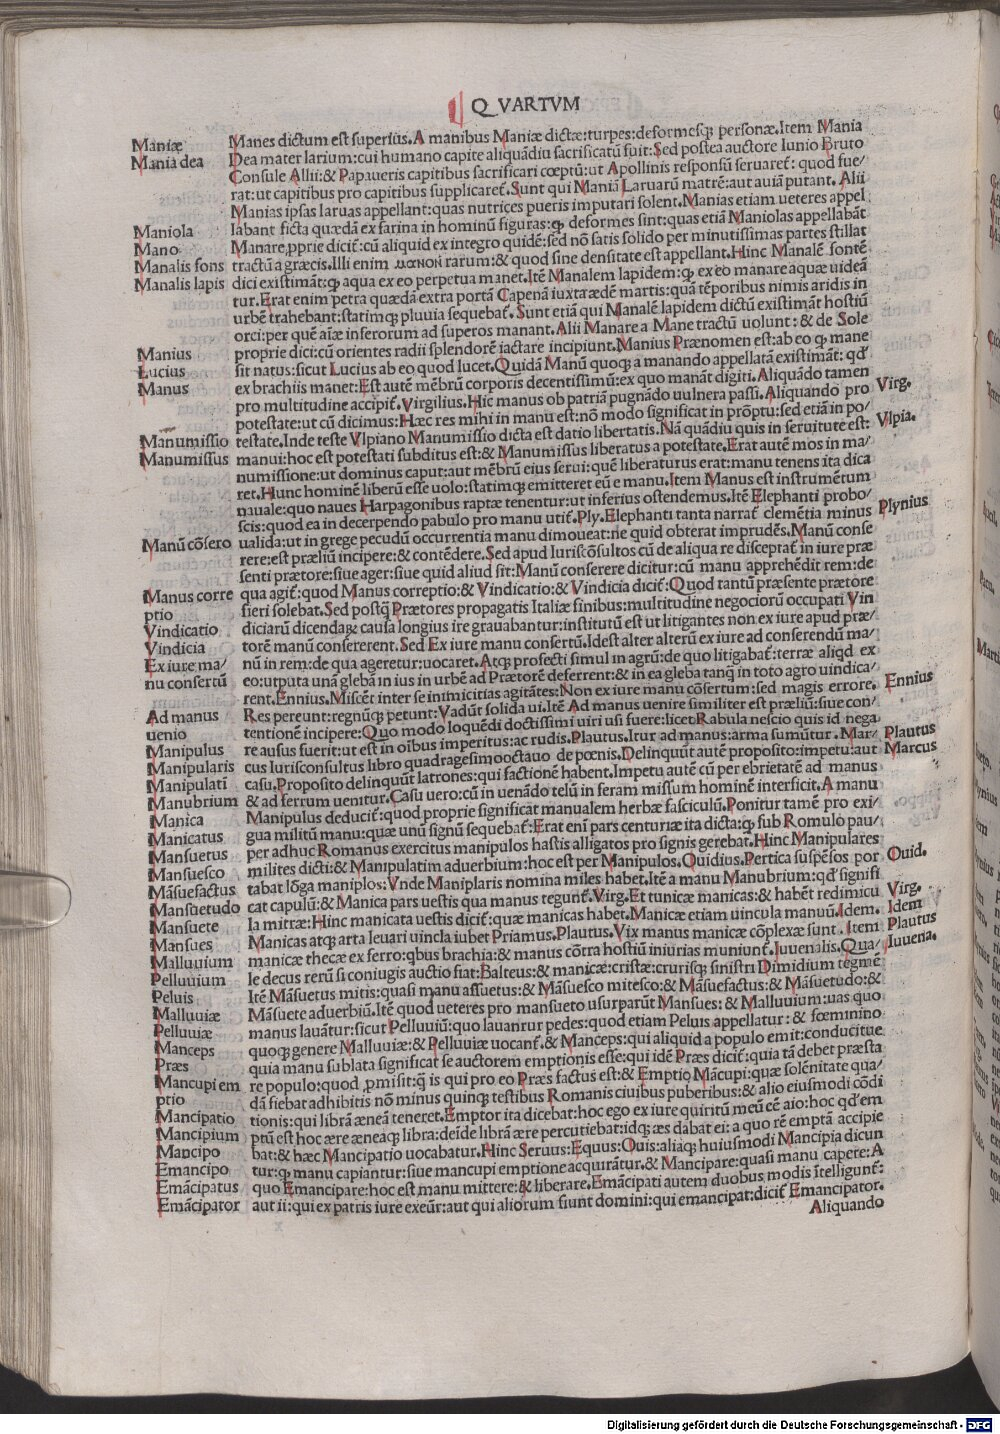 QVARTVM
Maniæ
Mania dea
Maniola
Mano
Manalis fons
Manalis lapis
Manius
Lucius
Manus
Manumissio
Manumissus
Manū cōsero
Manus corre
ptio
Vindicatio
Vindicia
Ex iure ma/
nu consertū
Ad manus
uenio
Manipulus
Manipularis
Manipulati
Manubrium
Manica
Manicatus
Mansuetus
Mansuesco
Māsuefactus
Mansuetudo
Mansuete
Mansues
Malluuium
Pelluuium
Peluis
Malluuiæ
Pelluuiæ
Manceps
Præs
Mancupi em
ptio
Mancipatio
Mancipium
Mancipo
Emancipo
Emācipatus
Emācipator
Manes dictum est superius. A manibus Maniæ dictæ: turpes: deformesq; personæ. Item Mania
Dea mater larium: cui humano capite aliquādiu sacrificatū fuit: Sed postea auctore Iunio Bruto
Consule Allii: & Papaueris capitibus sacrificari cœptū: ut Apollinis responsū seruaret̃: quod fue/
rat: ut capitibus pro capitibus supplicaret̃. Sunt qui Maniā Laruarū matrē: aut auiā putant. Alii
Manias ipsas laruas appellant: quas nutrices pueris imputari solent. Manias etiam ueteres appel
labant ficta quædā ex farina in hominū figuras: q̃ deformes sint: quas etiā Maniolas appellabāt
Manare ꝓprie dicit̃: cū aliquid ex integro quidē: sed nō satis solido per minutissimas partes stillat
tractū a græcis. Illi enim μανον rarum: & quod sine densitate est appellant. Hinc Manalē fontē
dici existimāt: q̃ aqua ex eo perpetua manet. Itē Manalem lapidem: q̃ ex eo manare aquæ uideā
tur. Erat enim petra quædā extra portā Capenā iuxta ædē martis: quā tēporibus nimis aridis in
urbē trahebant: statimq; pluuia sequebat̃. Sunt etiā qui Manalē lapidem dictū existimāt hostiū
orci: per quē aiæ inferorum ad superos manant. Alii Manare a Mane tractū uolunt: & de Sole
proprie dici: cū orientes radii splendorē iactare incipiunt. Manius Prænomen est: ab eo q̃ mane
sit natus: sicut Lucius ab eo quod lucet. Quidā Manū quoq; a manando appellatā existimāt: qd̃
ex brachiis manet: Est autē mēbrū corporis decentissimū: ex quo manāt digiti. Aliquādo tamen
pro multitudine accipit̃. Virgilius. Hic manus ob patriā pugnādo uulnera passi. Aliquando pro
potestate: ut cū dicimus: Hæc res mihi in manu est: nō modo significat in prōptu: sed etiā in po/
testate. Inde teste Vlpiano Manumissio dicta est datio libertatis. Nā quādiu quis in seruitute est:
manui: hoc est potestati subditus est: & Manumissus liberatus a potestate. Erat autē mos in ma/
numissione: ut dominus caput: aut mēbrū eius serui: quē liberaturus erat: manu tenens ita dica
ret. Hunc hominē liberū esse uolo: statimq; emitteret eū e manu. Item Manus est instrumētum
nauale: quo naues Harpagonibus raptæ tenentur: ut inferius ostendemus. Itē Elephanti probo/
scis: quod ea in decerpendo pabulo pro manu utit̃. Ply. Elephanti tanta narrat̃ clemētia minus
ualida: ut in grege pecudū occurrentia manu dimoueat: ne quid obterat imprudēs. Manū conse
rere: est præliū incipere: & contēdere. Sed apud Iuriscōsultos cū de aliqua re disceptat̃ in iure præ
senti prætore: siue ager: siue quid aliud sit: Manū conserere dicitur: cū manu apprehēdit rem: de
qua agit̃: quod Manus correptio: & Vindicatio: & Vindicia dicit̃: Quod tantū præsente prætore
fieri solebat. Sed postq̄ Prætores propagatis Italiæ finibus: multitudine negociorū occupati Vin
diciarū dicendaꝝ causa longius ire grauabantur: institutū est ut litigantes non ex iure apud præ/
torē manū consererent. Sed Ex iure manu consertū. Idest alter alterū ex iure ad conserendū ma/
nū in rem: de qua ageretur: uocaret. Atq; profecti simul in agrū: de quo litigabat̃: terræ aliqd ex
eo: utputa unā glebā in ius in urbē ad Prætorē deferrent: & in ea gleba tanq̄ in toto agro uindica/
rent. Ennius. Miscēt inter se inimicitias agitātes: Non ex iure manu cōsertum: sed magis errore.
Res pereunt: regnūq; petunt: Vadūt solida ui. Itē Ad manus uenire similiter est præliū: siue con/
tentionē incipere: Quo modo loquēdi doctissimi uiri usi fuere: licet Rabula nescio quis id nega
re ausus fuerit: ut est in oībus imperitus: ac rudis. Plautus. Itur ad manus: arma sumūtur. Mar/
cus Iurisconsultus libro quadragesimooctauo de pœnis. Delinquūt autē proposito: impetu: aut
casu. Proposito delinquūt latrones: qui factionē habent. Impetu autē cū per ebrietatē ad manus
& ad ferrum uenitur. Casu uero: cū in uenādo telū in feram missum hominē interficit. A manu
Manipulus deducit̃: quod proprie significat manualem herbæ fasciculū. Ponitur tamē pro exi/
gua militū manu: quæ unū signū sequebat̃: Erat enī pars centuriæ ita dicta: q̃ sub Romulo pau/
per adhuc Romanus exercitus manipulos hastis alligatos pro signis gerebat. Hinc Manipulares
milites dicti: & Manipulatim aduerbium: hoc est per Manipulos. Ouidius. Pertica suspēsos por
tabat lōga maniplos: Vnde Maniplaris nomina miles habet. Itē a manu Manubrium: qd̃ signifi
cat capulū: & Manica pars uestis qua manus tegunt̃. Virg. Et tunicæ manicas: & habēt redimicu
la mitræ: Hinc manicata uestis dicit̃: quæ manicas habet. Manicæ etiam uincula manuū. Idem.
Manicas atq; arta leuari uincla iubet Priamus. Plautus. Vix manus manicæ cōplexæ sunt. Item
manicæ thecæ ex ferro: qbus brachia: & manus cōtra hostiū iniurias muniunt̃. Iuuenalis. Qua/
le decus rerū si coniugis auctio fiat: Balteus: & manicæ: cristæ: crurisq; sinistri Dimidium tegmē
Itē Māsuetus mitis: quasi manu assuetus: & Māsuesco mitesco: & Māsuefactus: & Māsuetudo: &
Māsuete aduerbiū. Itē quod ueteres pro mansueto usurparūt Mansues: & Malluuium: uas quo
manus lauātur: sicut Pelluuiū: quo lauantur pedes: quod etiam Peluis appellatur: & fœminino
quoq; genere Malluuiæ: & Pelluuiæ uocant̃. & Manceps: qui aliquid a populo emit: conducitue
quia manu sublata significat se auctorem emptionis esse: qui idē Præs dicit̃: quia tā debet præsta
re populo: quod ꝓmisit: q̄ is qui pro eo Præs factus est: & Emptio Mācupi: quæ solēnitate qua/
dā fiebat adhibitis nō minus quinq; testibus Romanis ciuibus puberibus: & alio eiusmodi cōdi
tionis: qui librā æneā teneret. Emptor ita dicebat: hoc ego ex iure quiritū meū eē aio: hoc qd̃ em
ptū est hoc ære æneaq; libra: deīde librā ære percutiebat: idq; æs dabat ei: a quo rē emptā accipie
bat: & hæc Mancipatio uocabatur. Hinc Seruus: Equus: Ouis: aliaq; huiusmodi Mancipia dicun
tur: q̃ manu capiantur: siue mancupi emptione acquirātur. & Mancipare: quasi manu capere: A
quo Emancipare: hoc est manu mittere: & liberare. Emācipati autem duobus modis ītelligunt̃:
aut ii: qui ex patris iure exeūt: aut qui aliorum fiunt domini: qui emancipat: dicit̃ Emancipator.
Aliquando
Virg.
Vlpia.
Plynius
Ennius
Plautus
Marcus
Ouid.
Virg.
Idem
Plautus
Iuuena.
Digitalisierung gefördert durch die Deutsche Forschungsgemeinschaft - DFG